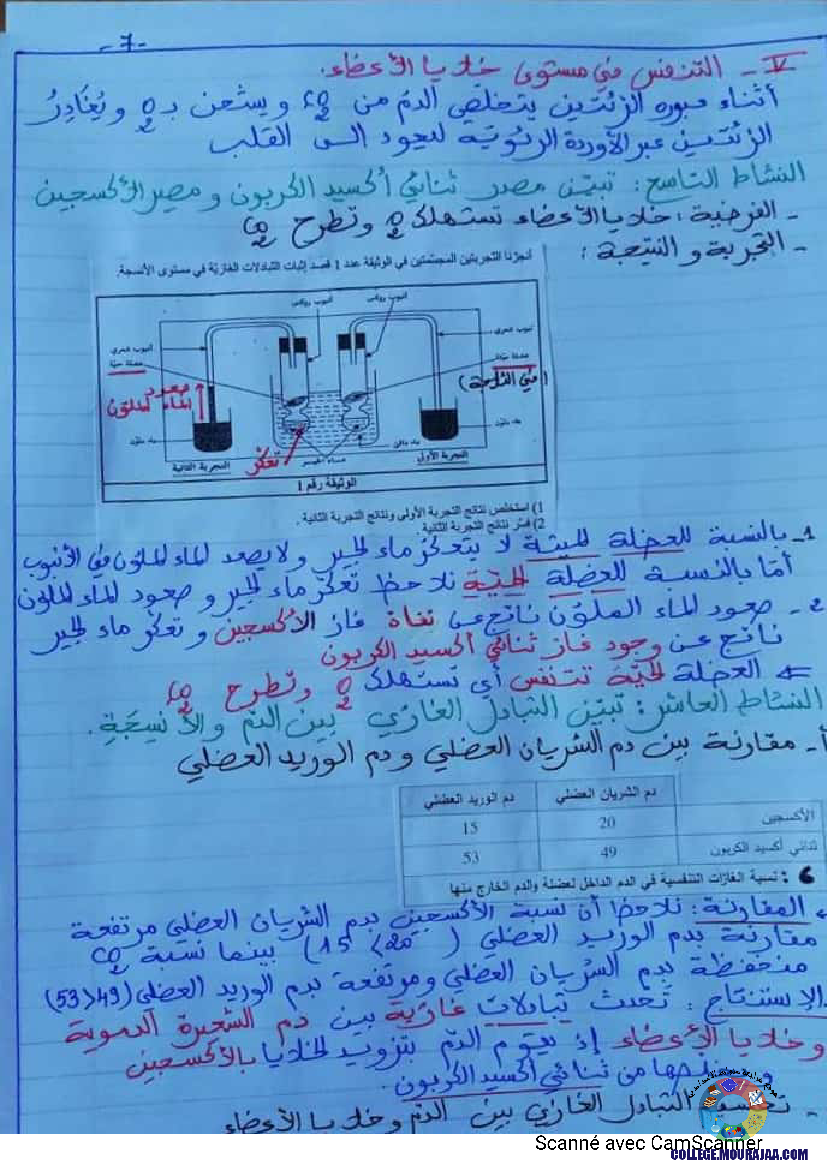 -7-
V - التنفس في مستوى خلايا الأعضاء.
أثناء عبوره الرئتين يتخلص الدم من CO2 ويشحن بـ O2 ويُغادِرُ
الرئتين عبر الأوردة الرئوية ليعود إلى القلب
النشاط التاسع: تبيّن مصدر ثنائي أكسيد الكربون ومصير الأكسجين
- الفرضية: خلايا الأعضاء تستهلك O2 وتطرح CO2
- التجربة والنتيجة:
أنجزنا التجربتين المجسّمتين في الوثيقة عدد 1 قصد إثبات التبادلات الغازيّة في مستوى الأنسجة.
أنبوب شعري
عضلة حيّة
صعود
الماء الملوّن
ماء ملوّن
التجربة الثانية
تعكّر
أنبوب شعري
عضلة
ماء ملوّن
التجربة الأولى
الوثيقة رقم 1
1) استخلص نتائج التجربة الأولى ونتائج التجربة الثانية .
2) فسّر نتائج التجربة الثانية
1- بالنسبة للعضلة الميتة لا يتعكر ماء الجير ولا يصعد الماء الملوّن في الأنبوب
أمّا بالنسبة للعضلة الحيّة نلاحظ تعكّر ماء الجير وصعود الماء الملوّن
2- صعود الماء الملوّن ناتج عن نفاذ غاز الأكسجين وتعكر ماء الجير
ناتج عن وجود غاز ثنائي أكسيد الكربون
⇐ العضلة الحيّة تتنفس أي تستهلك O2 وتطرح CO2
النشاط العاشر: تبيّن التبادل الغازي بين الدم والأنسِجَةِ.
أ- مقارنة بين دم الشريان العضلي ودم الوريد العضلي
دم الشريان العضلي دم الوريد العضلي
الأكسجين 20 15
ثنائي أكسيد الكربون 49 53
6 : نسبة الغازات التنفسية في الدم الداخل لعضلة والدم الخارج منها
المقارنة: نلاحظ أن نسبة الأكسجين بدم الشريان العضلي مرتفعة
مقارنة بدم الوريد العضلي (20 15) بينما نسبة CO2
منخفظة بدم الشريان العضلي ومرتفعة بدم الوريد العضلي (49 53)
الإستنتاج: تحدث تبادلات غازية بين دم الشعيرة الدموية
وخلايا الأعضاء إذ يقوم الدّم بتزويد الخلايا بالأكسجين
من ثنائي أكسيد الكربون.
التبادل الغازي بين الدم وخلايا الأعضاء
Scanné avec CamScanner
COLLEGE.MOURAJAA.COM